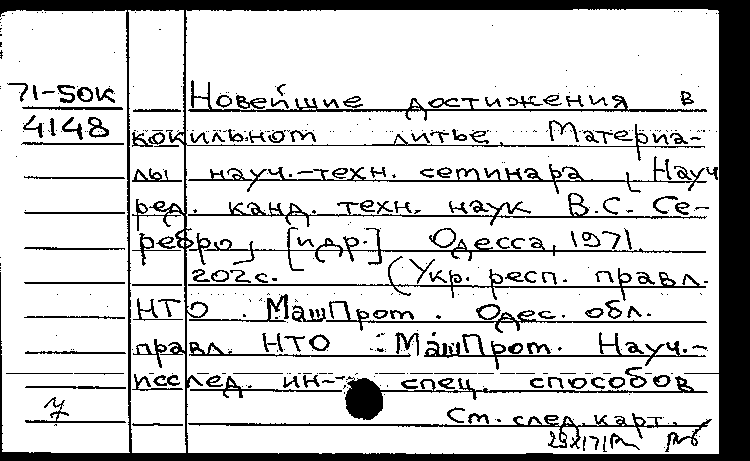 71-50к
4148
Новейшие достижения в
кокильном литье. Материа-
лы науч.-техн. семинара. [Науч
ред. канд. техн. наук В.С. Се-
ребро], [и др.] Одесса, 1971.
202 с. (Укр. респ. правл.
НТО . МашПром . Одес. обл.
правл. НТО : МашПром. Науч.-
исслед. ин- спец. способов
Ст. след. карт.